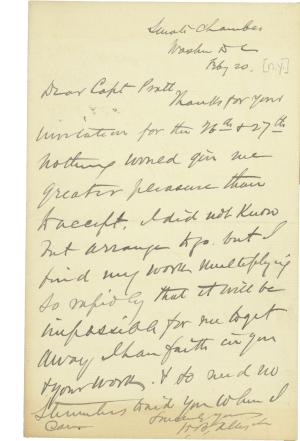 Senate Chamber
Washn D C
Feby 20. [n.y.]
Dear Capt Pratt
Thanks for your
invitation for the 26th & 27th
nothing would give me
greater pleasure than
to accept. I did not know
but arrange to go. but I
find my work multiplying
so rapidly that it will be
impossible for me to get
away I have faith in you
& your work. & so need no
stimulus to aid you when I
can
Sincerely yours